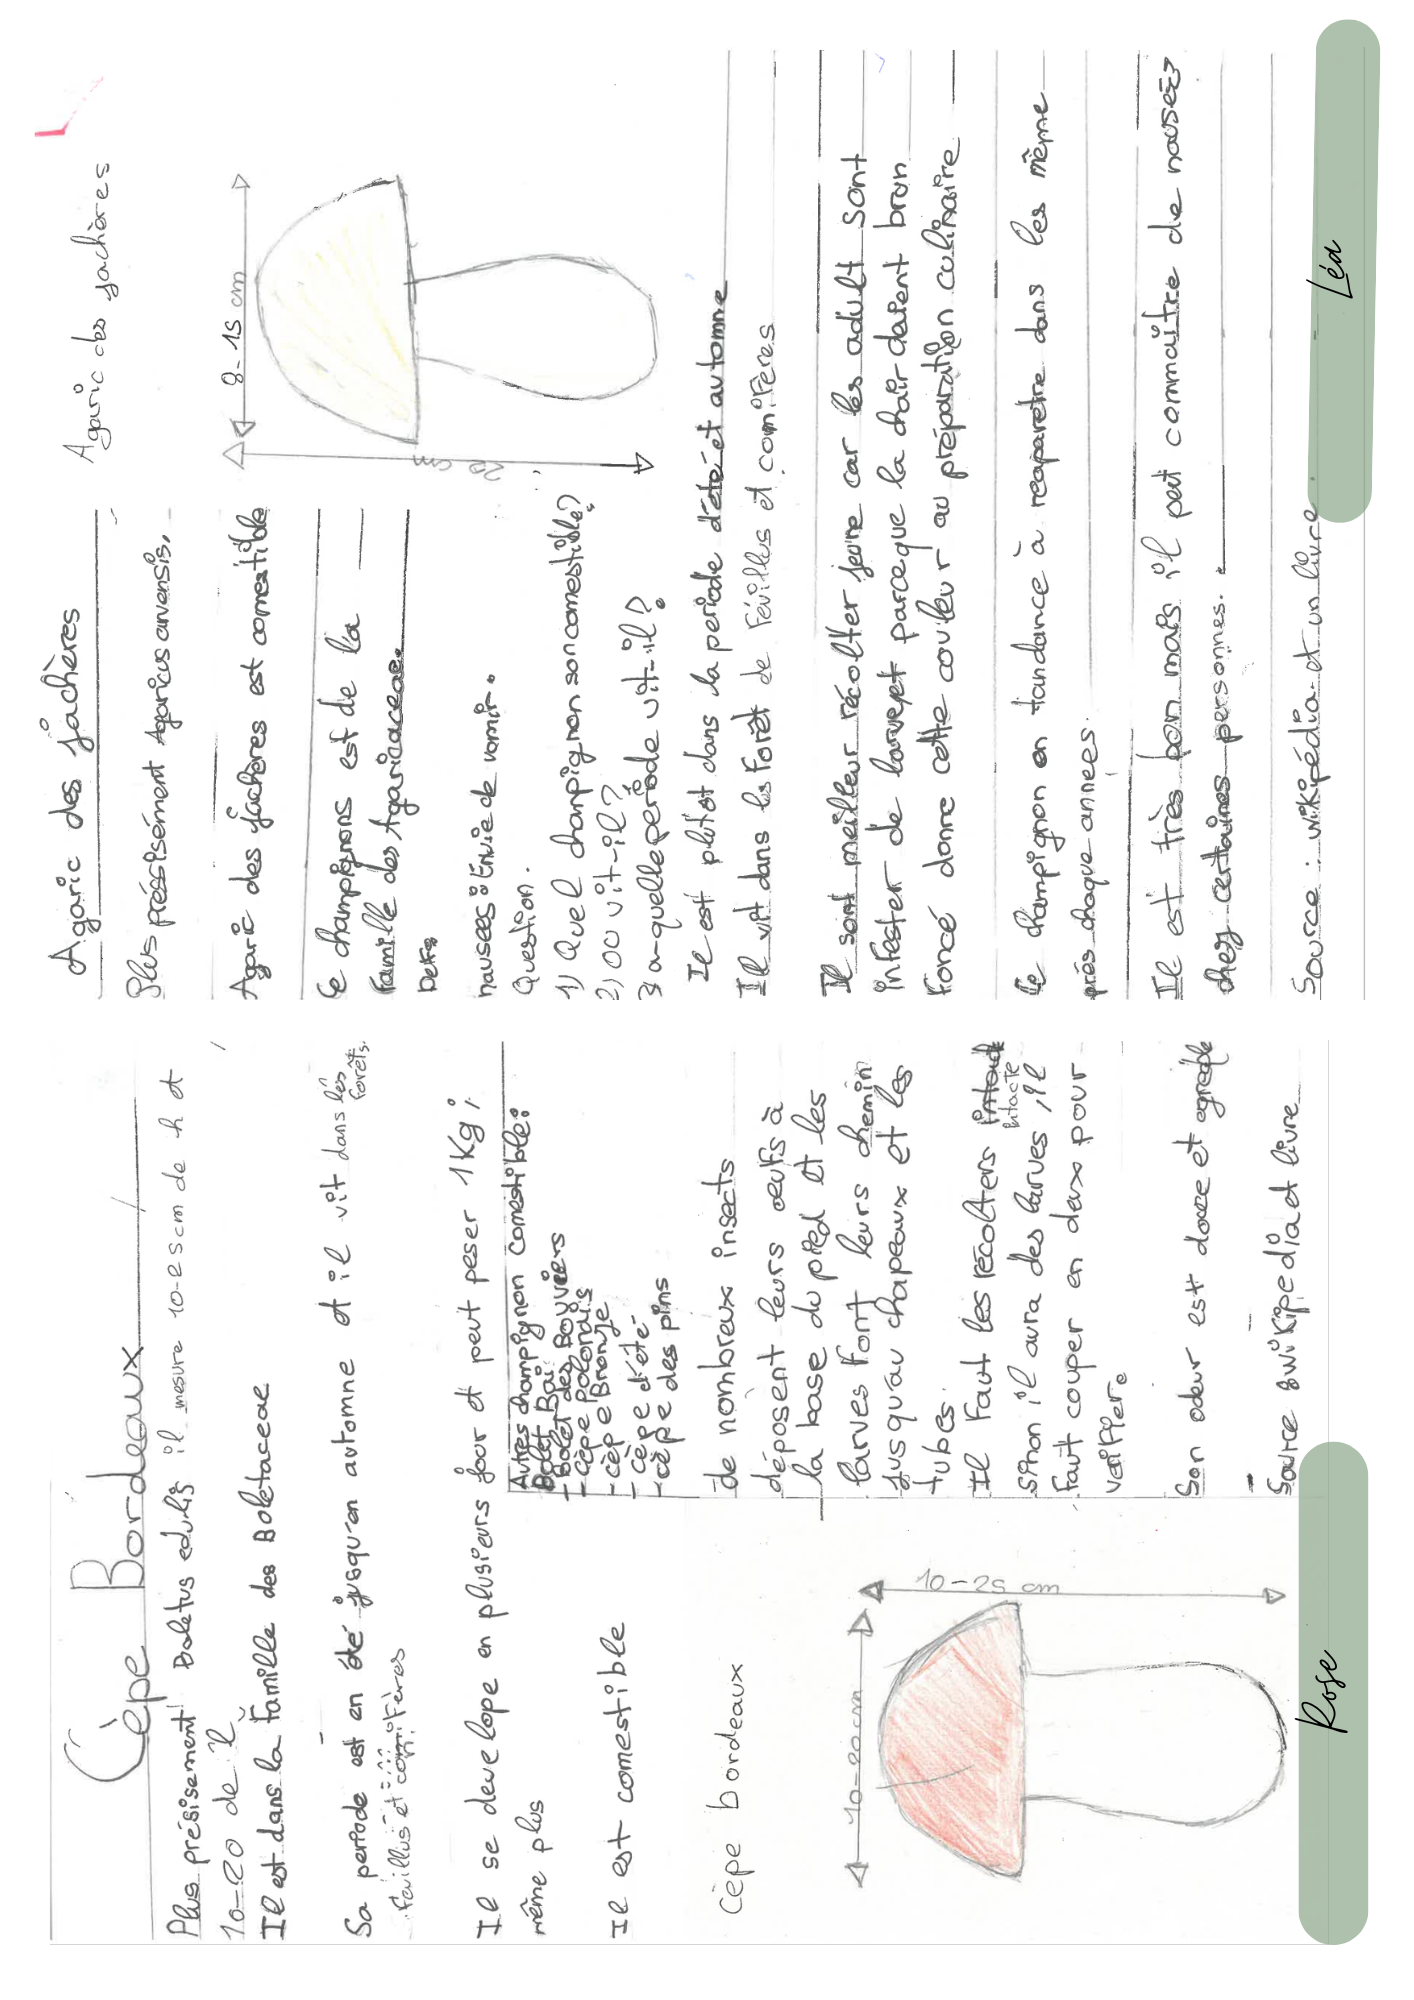 Cèpe Bordeaux
Plus présisement Boletus edulis il mesure 10-25cm de h et
10-20 de l
Il est dans la famille des Boletaceae
Sa periode est en été jusqu'en automne et il vit dans les forêts.
feuillus et conifères
Il se develope en plusieurs jour et peut peser 1Kg ;
même plus
Il est comestible
Autres champignon comestible :
Bolet Bai
- Bolet des Bouviers
- Cèpe polonais
- cèpe Bronze
- cèpe d'été
- cèpe des pins
Cèpe bordeaux
10-20 cm
10-25 cm
de nombreux insects
déposent leurs oeufs à
la base du pied et les
larves font leurs chemin
jusqu'au chapeaux et les
tubes.
Il faut les récolters intacte
sinon il aura des larves, il
faut couper en deux pour
verifier.
Son odeur est douce et agréable
Source : wikipedia et livre
Rose
Agaric des jachères
Plus préssisément Agaricus arvensis.
Agaric des jachères est comestible
Ce champignons est de la
famille des Agaricaceae.
Defis
nausées : Envie de vomir.
Question.
1) Quel champignon son comestible ?
2) Où vit-il ?
3) a quelle période vit-il ?
Agaric des jachères
8-15 cm
20 cm
Il est plutot dans la periode d'été et automne
Il vit dans les Forêt de Feuillus et conifères
Il sont meilleur récolter jeune car les adult sont
infester de larve et parceque la chair devient brun
foncé donne cette couleur au préparation culinaire
Ce champignon en tandance à reaparetre dans les même
près chaque annees.
Il est très bon mais il peut commaître de nauseés
chez certaines personnes.
Source : wikipédia et un livre.
Léa